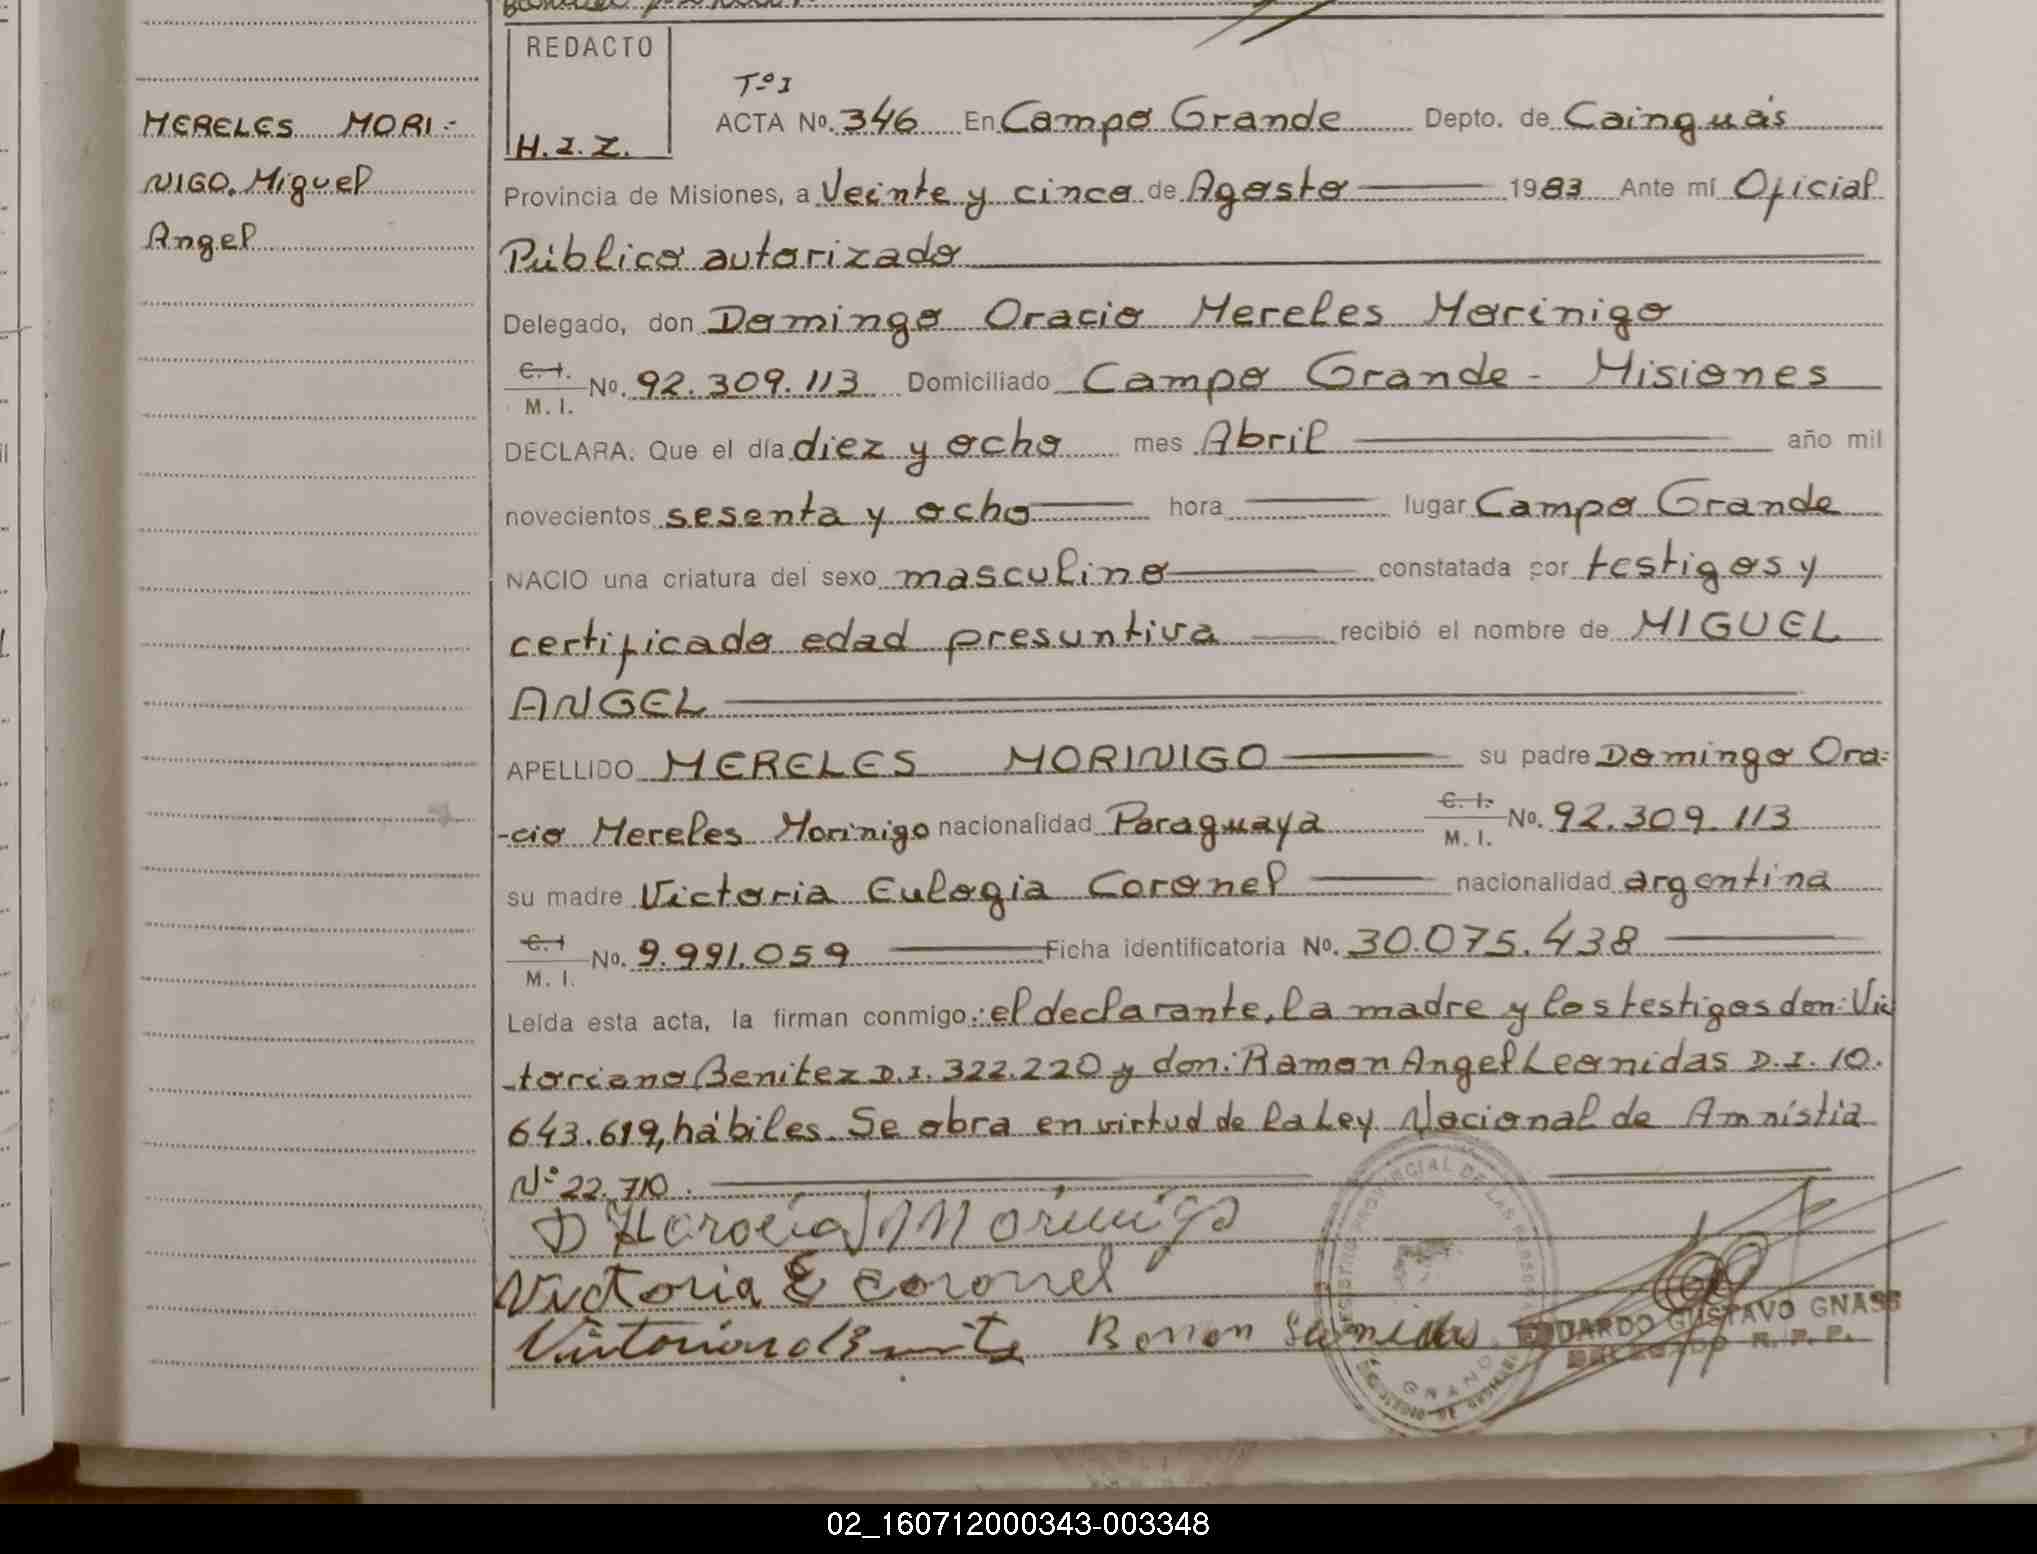 HERELES MORI-
NIGO. Miguel
Angel
REDACTO
H.I.Z.
Tº I
ACTA Nº. 346 En Campo Grande Depto. de Cainguás
Provincia de Misiones, a Veinte y cinco de Agosto 1983 Ante mí Oficial
Público autorizado
Delegado, don Domingo Oracio Mereles Morinigo
C. I. M. I. Nº. 92.309.113 Domiciliado Campo Grande - Misiones
DECLARA: Que el día diez y ocho mes Abril año mil
novecientos sesenta y ocho hora lugar Campo Grande
NACIO una criatura del sexo masculino constatada por testigos y
certificado edad presuntiva recibió el nombre de MIGUEL
ANGEL
APELLIDO MERELES MORINIGO su padre Domingo Ora-
-cio Mereles Morinigo nacionalidad Paraguaya C. I. M. I. Nº. 92.309.113
su madre Victoria Eulogia Coronel nacionalidad argentina
C. I M. I. Nº. 9.991.059 Ficha identificatoria Nº. 30.075.438
Leída esta acta, la firman conmigo: el declarante, la madre y los testigos don: Vic
-toriano Benitez D.I. 322.220 y don: Ramon Angel Leonidas D.I. 10.
643.619, hábiles. Se obra en virtud de la Ley Nacional de Amnistia
Nº 22.710.
D Horocio M Morinigo
Victoria E coronel
Victoriano Benite Ramon
REGISTRO PROVINCIAL DE LAS PERSONAS
EDUARDO GUSTAVO GNASS
DELEGADO R. P. P.
02_160712000343-003348